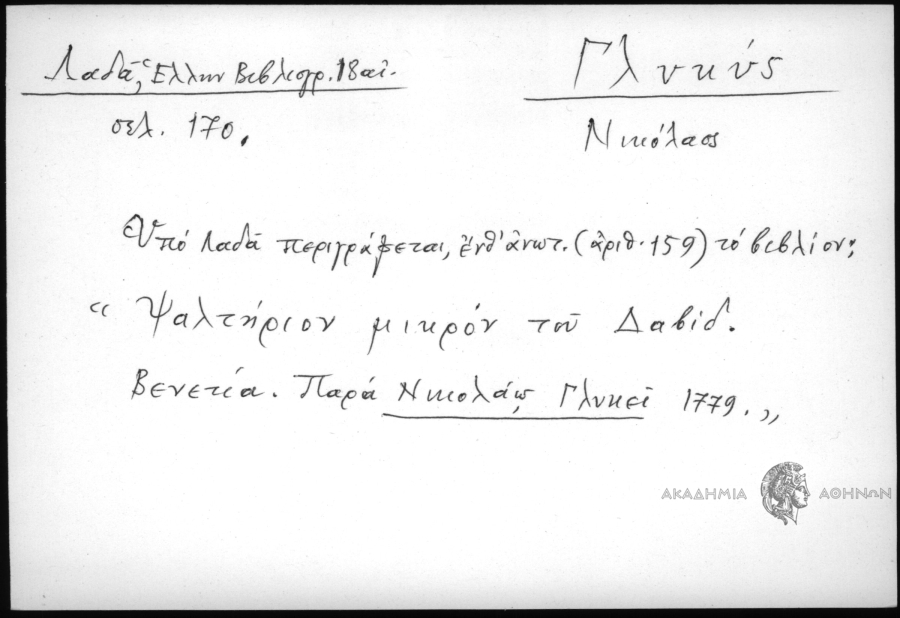 Λαδᾶ, Ἑλλην Βιβλιογρ. 18 αἰ.
σελ. 170.
Γλυκύς
Νικόλαος
Ὑπό Λαδᾶ περιγράφεται, ἐνθ' ἀνωτ. (ἀριθ. 159) τό βιβλίον:
“ Ψαλτήριον μικρόν τοῦ Δαβίδ.
Βενετία. Παρά Νικολάῳ Γλυκεῖ 1779. „
ΑΚΑΔΗΜΙΑ ΑΘΗΝΩΝ